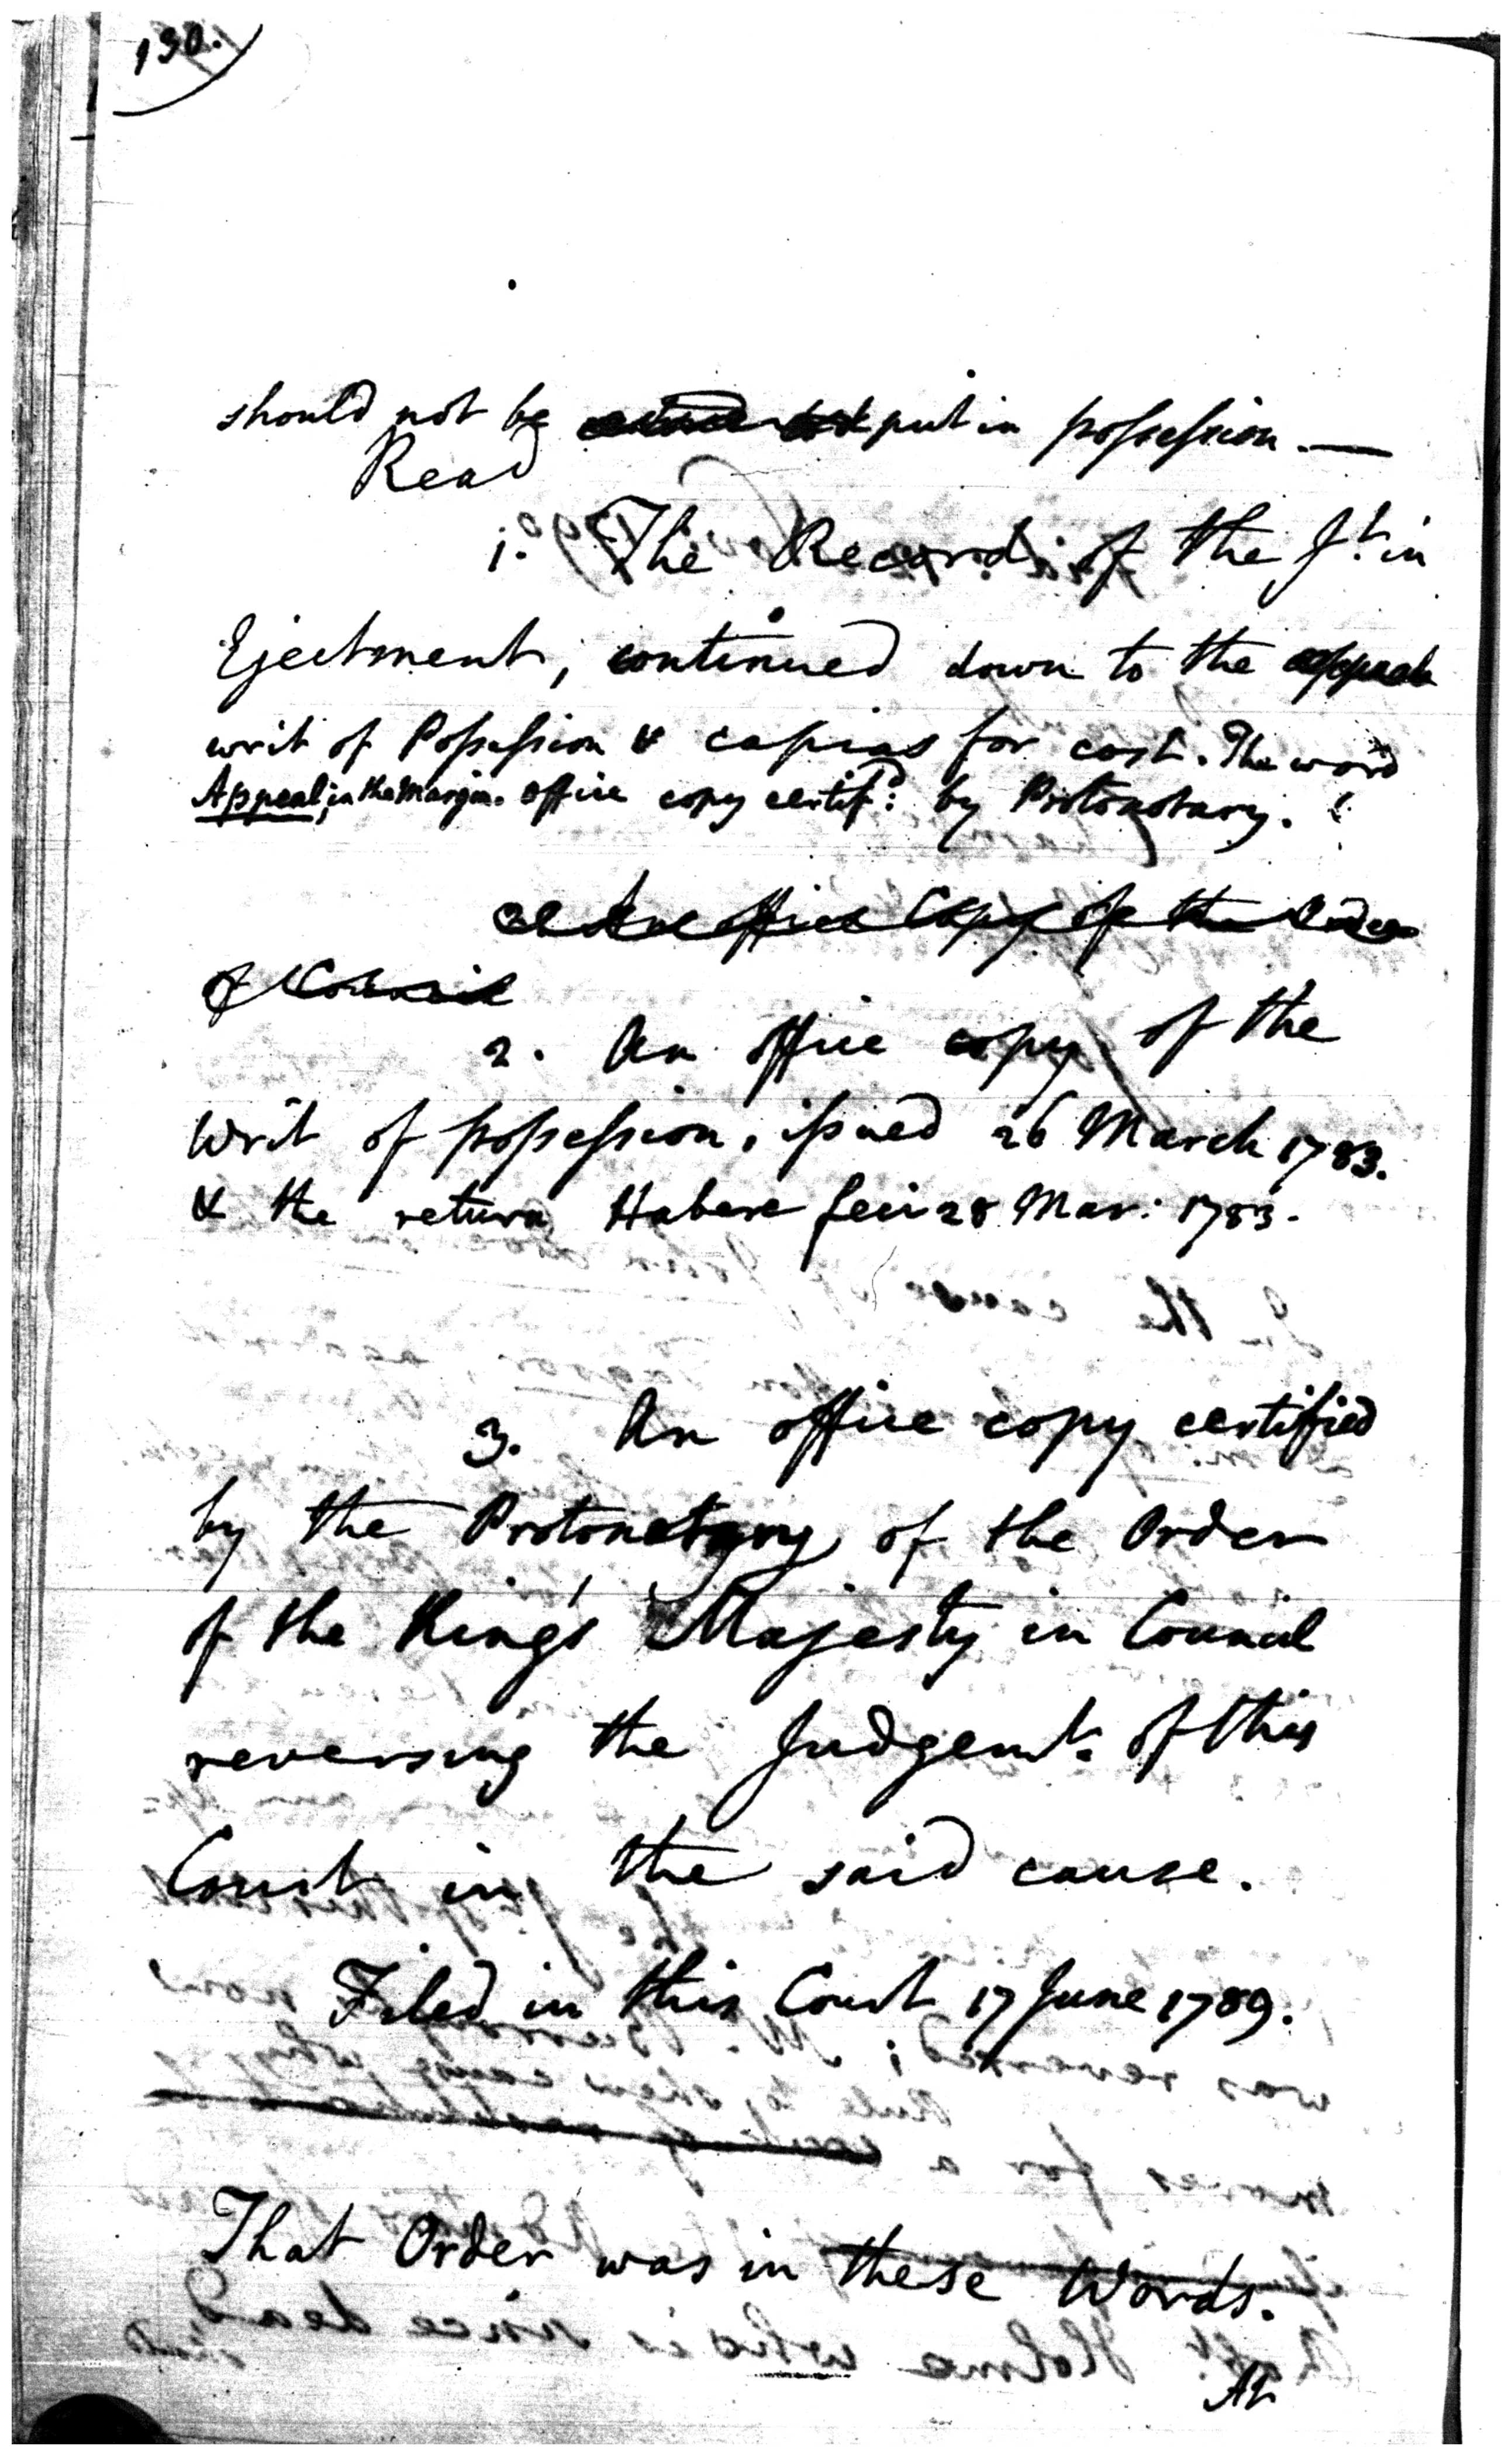 130.
should not be put in possession. —
Read
1. The Record of the Jt. in
Ejectment, continued down to the
writ of Possession & capias for cost. The word
Appeal, in the Margin. Office copy certifd. by Protonotary.
2 An office Copy of the Order
of Council
2. An office copy of the
Writ of possession, issued 26 March 1783.
& the return Habere feci 28 Mar: 1783.
3. An office copy certified
by the Protonotary of the Order
of the King's Majesty in Council
reversing the Judgemt. of this
Court in the said cause.
Filed in this Court 17 June 1789.
That Order was in these Words.
At